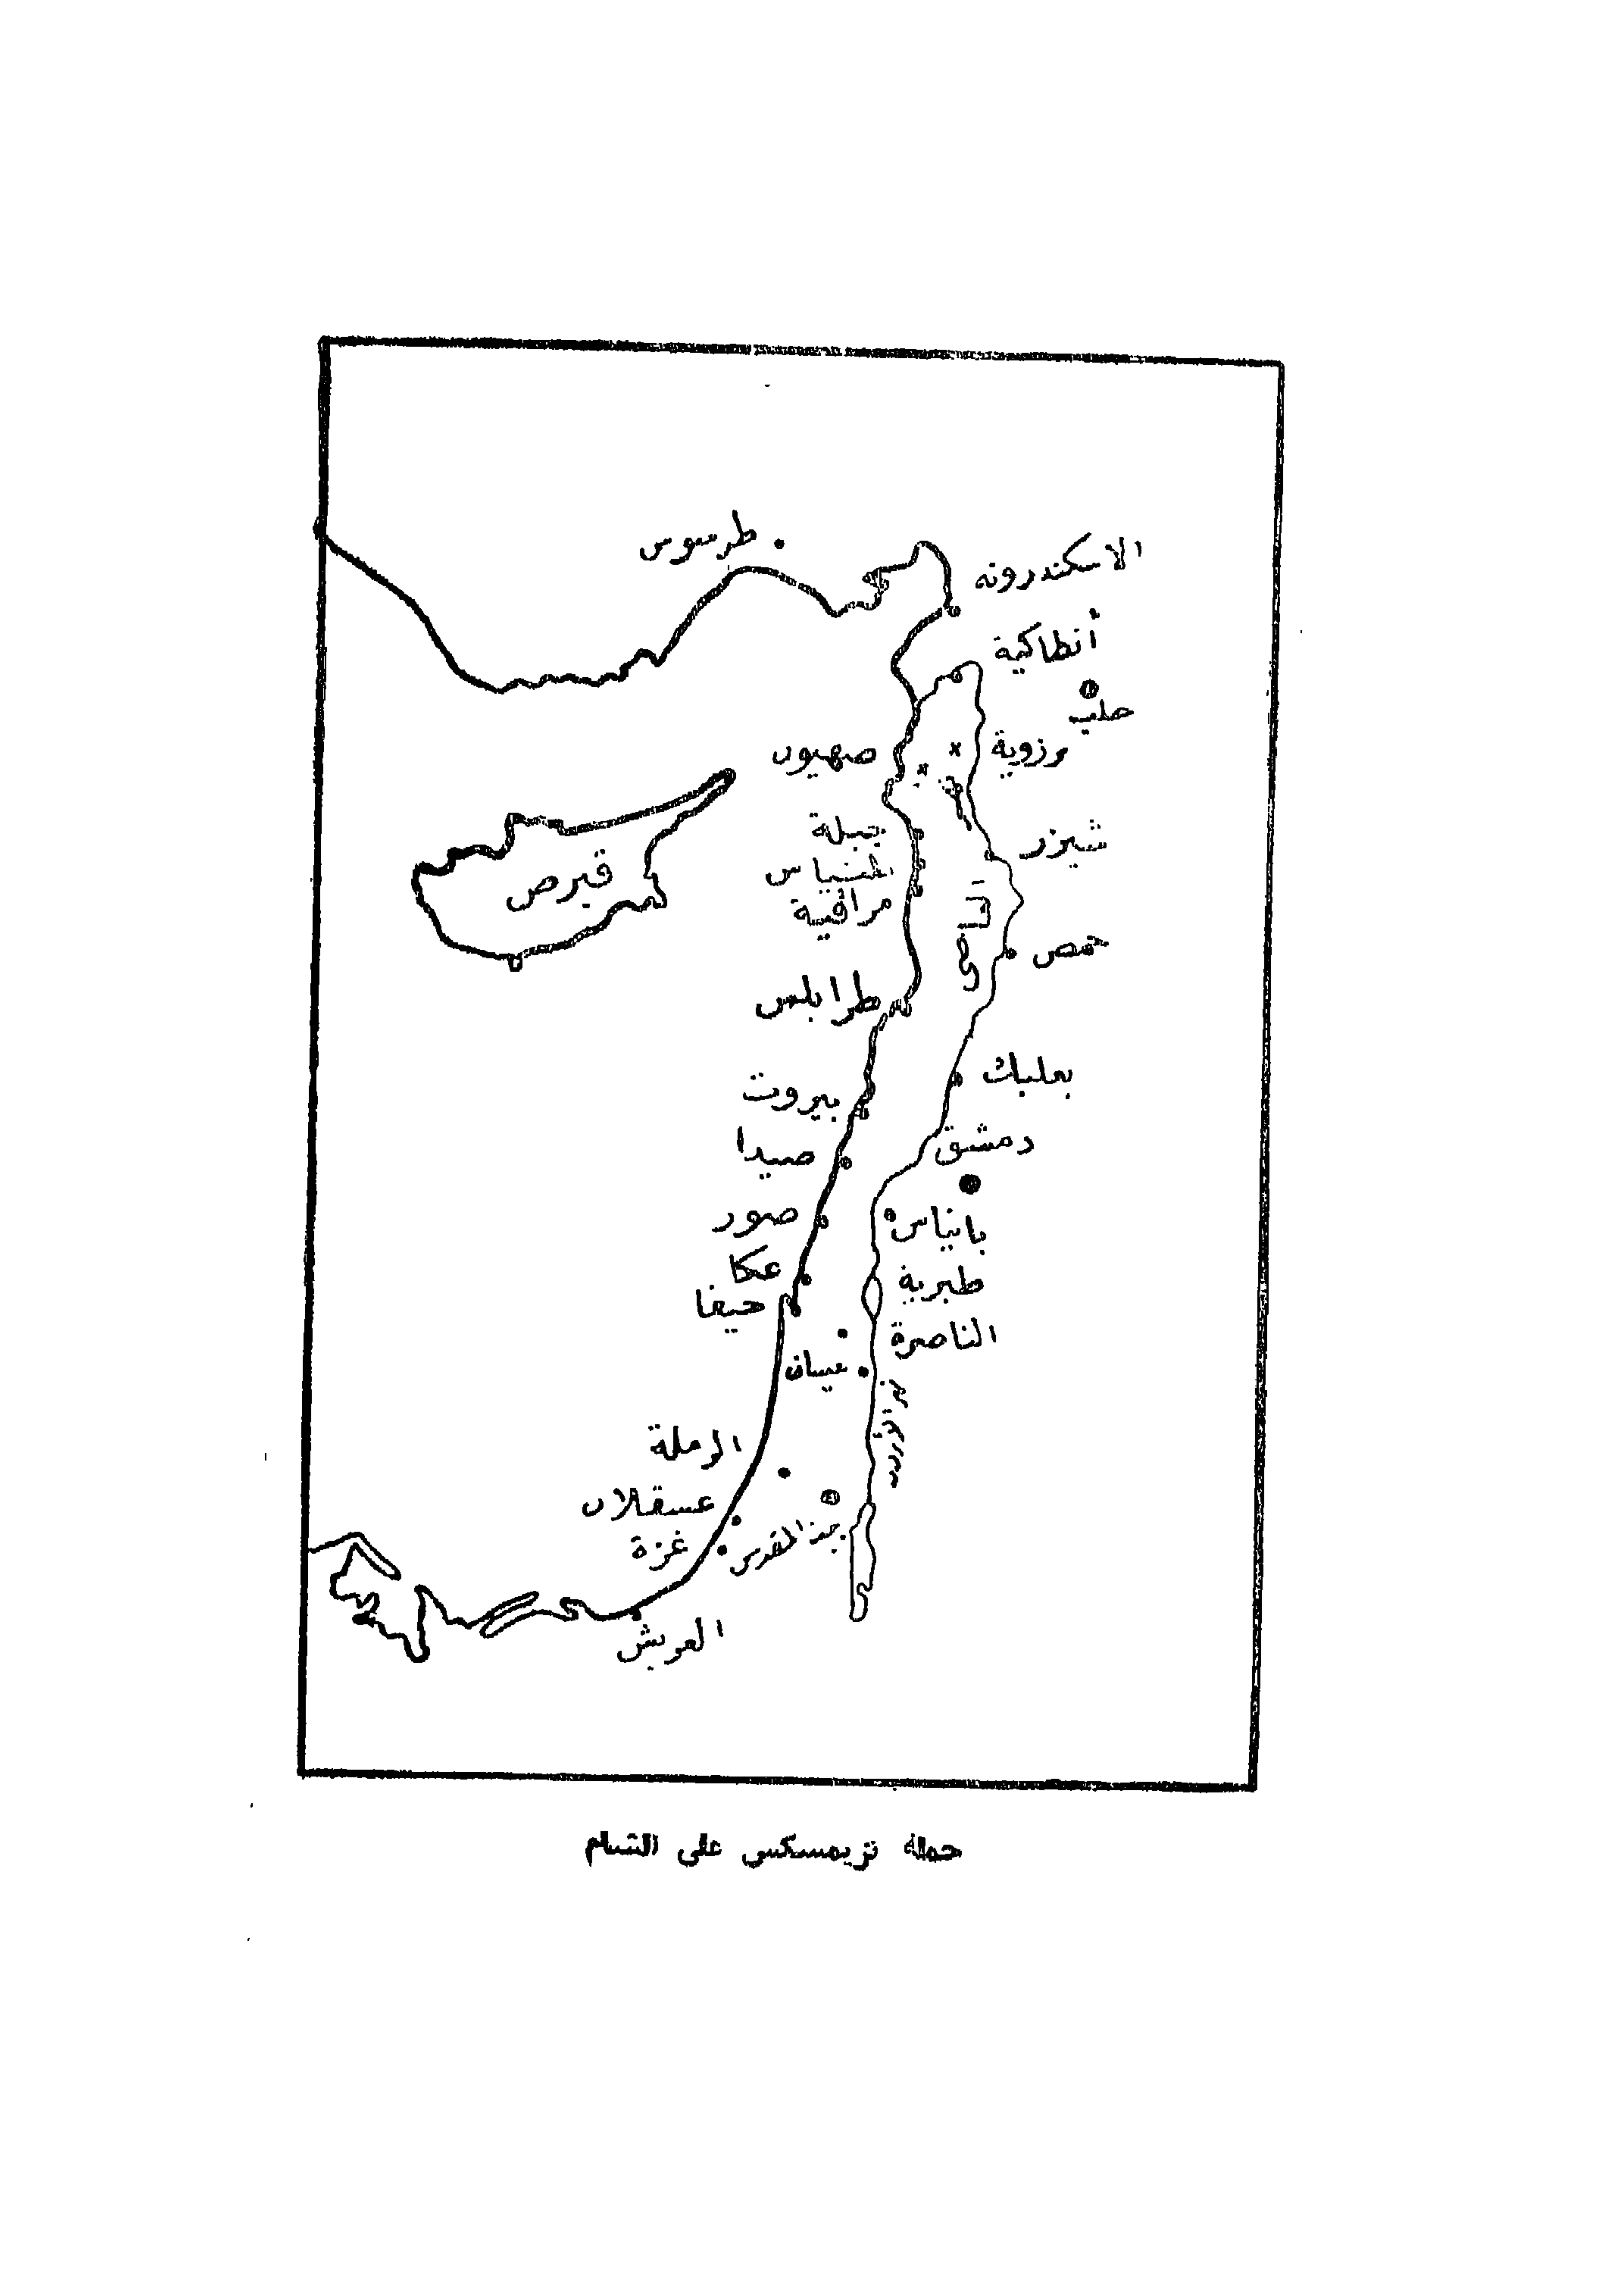 طرسوس
الاسكندرونه
أنطاكية
حلب
صهيون
برزوية
جبلة
شيزر
مرافية
قبرص
حمص
طرابلس
بعلبك
بيروت
دمشق
صيدا
صور
بانياس
عكا
طبرية
حيفا
الناصرة
بيسان
نهر الأردن
الرملة
عسقلان
غزة
بيت المقدس
العريش
حملة تزيمسكس على الشام